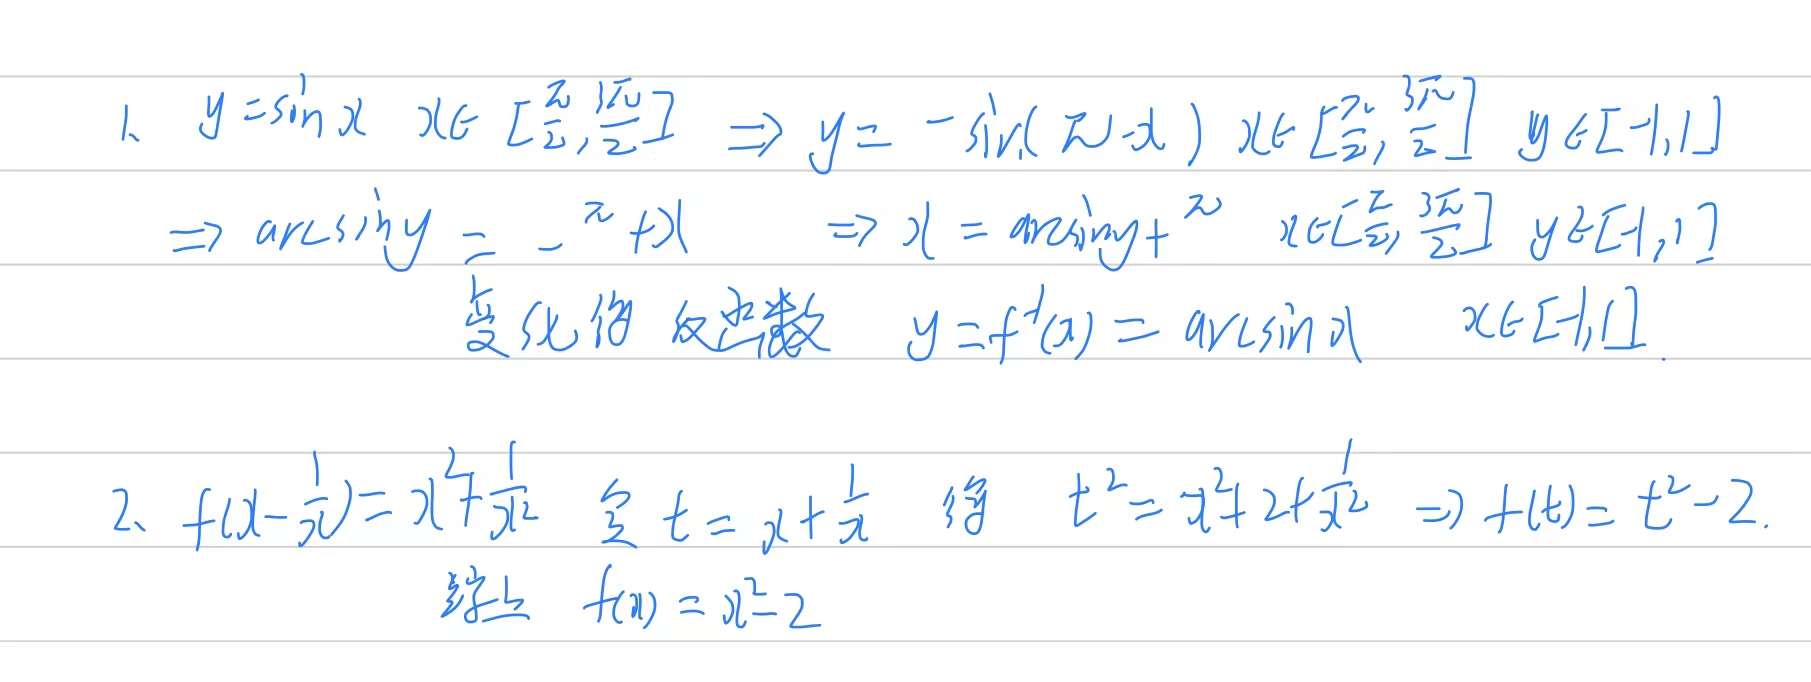 1、 y=sinx x∈[π/2, 3π/2] ⇒ y= -sin(π-x) x∈[π/2, 3π/2] y∈[-1,1]
⇒ arcsiny = -π+x ⇒ x = arcsiny+π x∈[π/2, 3π/2] y∈[-1,1]
变化得 反函数 y=f⁻¹(x) = arcsinx x∈[-1,1].
2、 f(x-1/x)=x²+1/x² 令 t=x+1/x 得 t²=x²+2+1/x² ⇒ f(t)=t²-2.
综上 f(x)=x²-2